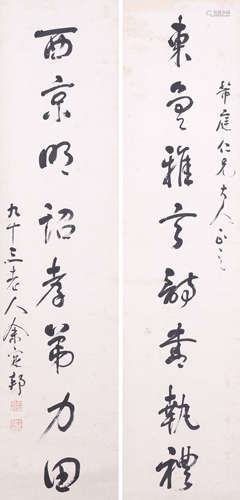 東魯雅言詩書執禮
西京明詔孝弟力田
仁兄大人正之
九十三老人余定邦